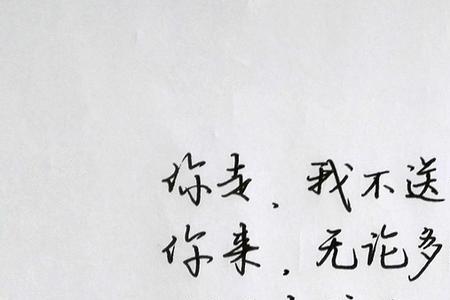 你走,我不送
你来,无论多